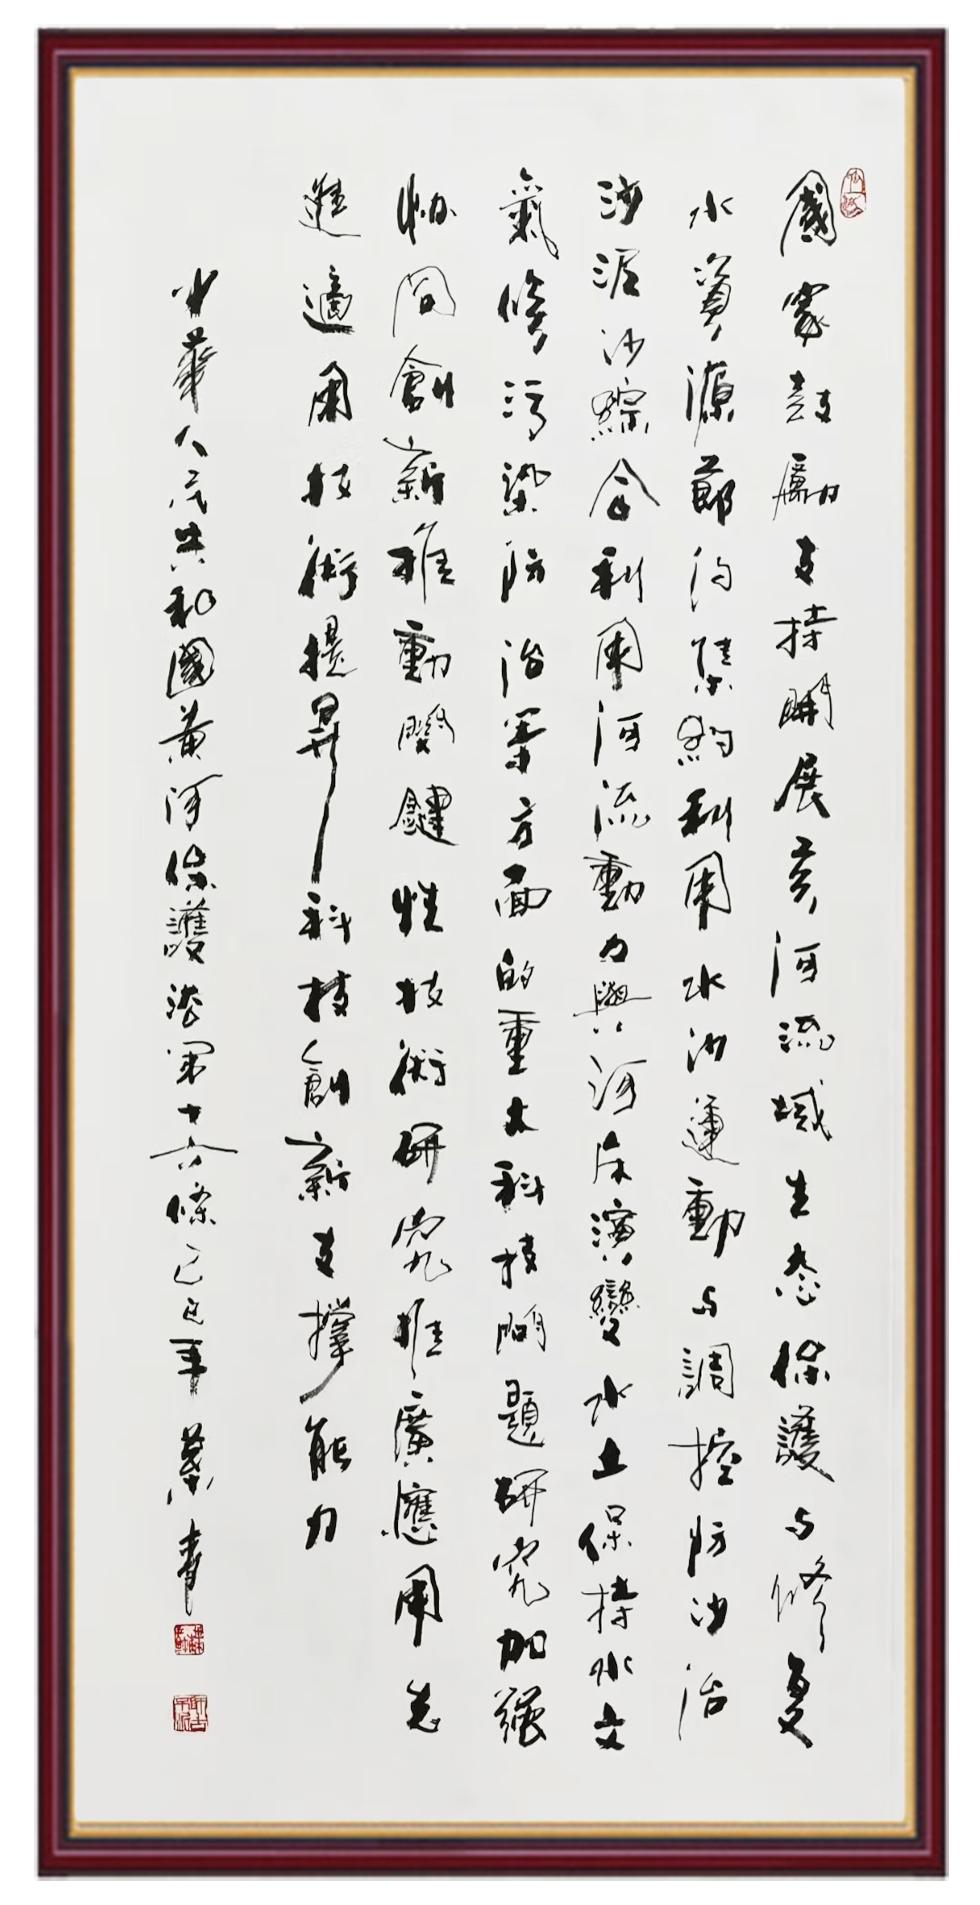 國家鼓勵支持開展黃河流域生态保護与修复
水資源節約集約利用水沙運動与調控防沙治
沙泥沙綜合利用河流動力與河床演變水土保持水文
氣候污染防治等方面的重大科技問題研究加强
協同創新推動關鍵性技術研究推廣應用先
進適用技術提昇科技創新支撐能力
中華人民共和國黃河保護法第十六條乙巳年